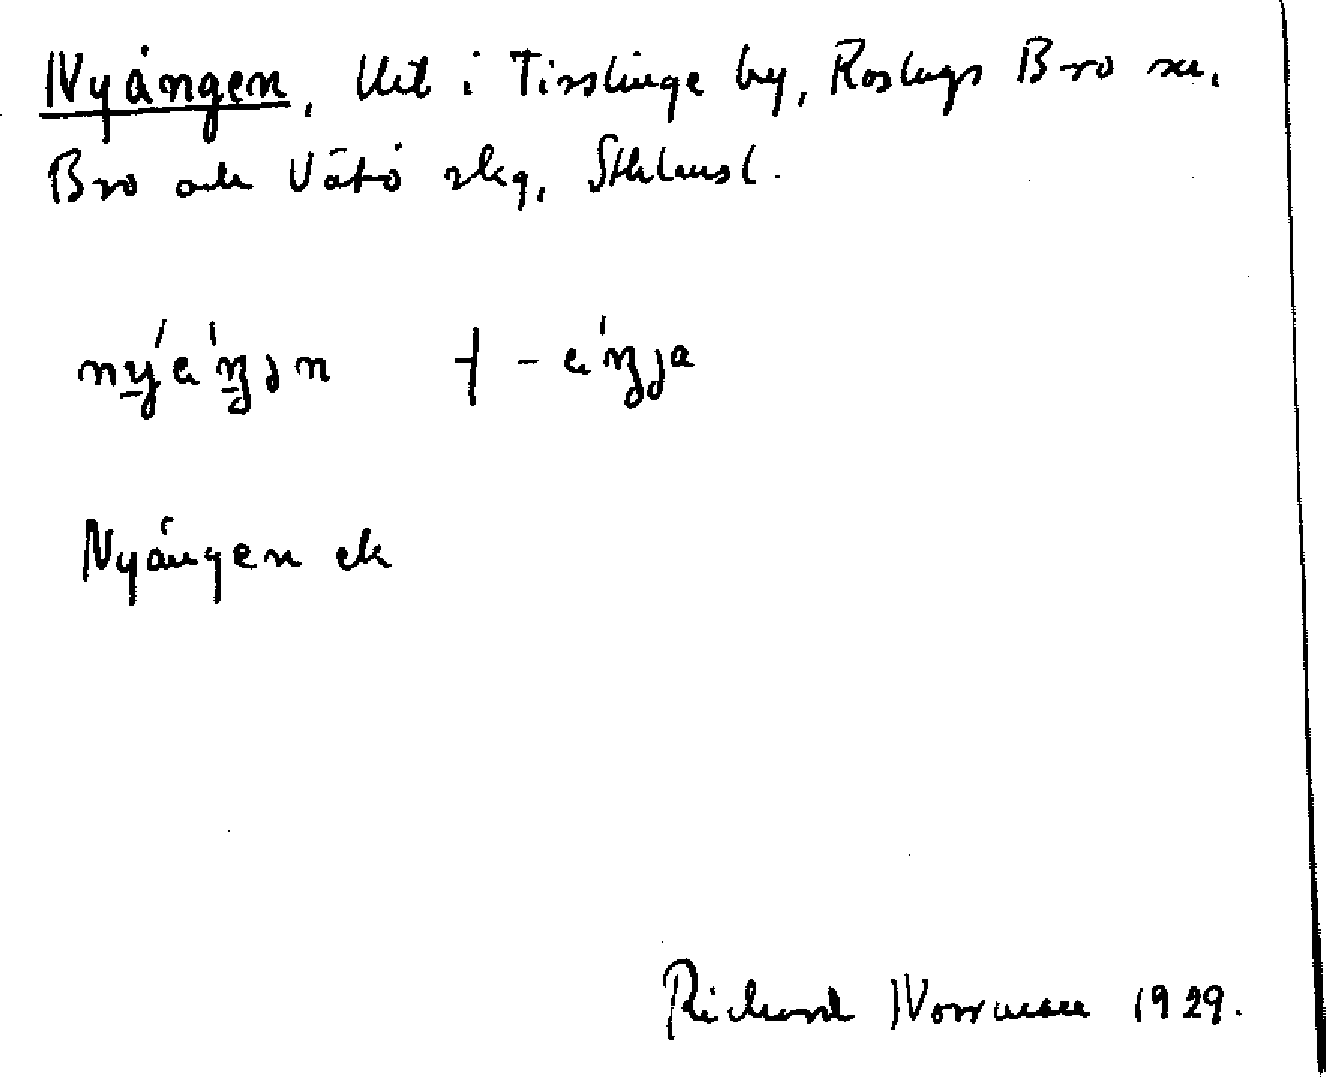 Nyängen, Utt i Tisslinge by, Roslags Bro sn.
Bro och Vätö skg, Sthlmsl.
Nyängen ek
Richard Norrman 1929.